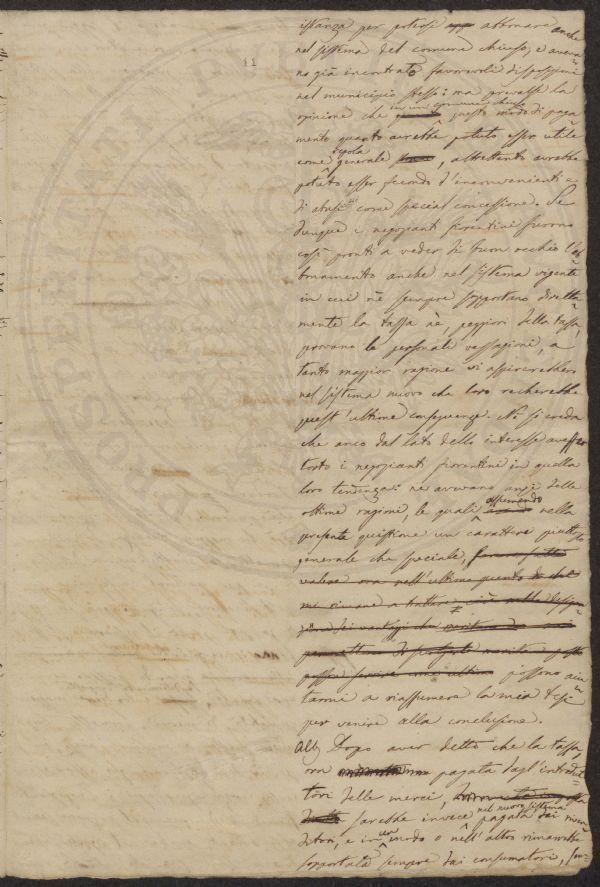 11
istanza per potersi abbonare anche
nel sistema del comune chiuso, e aveva-
no già incontrato favorevoli disposizioni
nel municipio stesso: ma prevalse la
opinione che in un comune chiuso questo modo di paga
mento quanto avrebbe potuto esser utile
come regola generale, altrettanto avrebbe
potuto esser fecondo d'inconvenienti e
di abusi come special concessione. Se
dunque i negozianti fiorentini furono
così pronti a veder di buon occhio l'ab
bonamento anche nel sistema vigente
in cui nè sempre sopportano diretta
mente la tassa nè, peggiori della tassa,
provano le personali vessazioni, a
tanto maggior ragione vi aspirerebbero
nel sistema nuovo che loro recherebbe
quest'ultime conseguenze. Nè si creda
che anco dal lato dello interesse avesser
torto i negozianti fiorentini in quella
loro tendenza: ne avevano anzi delle
ottime ragioni, le quali assumendo nella
presente quistione un carattere piuttosto
generale che speciale,
valere ora nell'ultimo punto che
mi rimane a trattare, cioè nella
dei vantaggi che
permettono di
possono aiu
tarmi a riassumere la mia tesi
per venire alla conclusione.
All) Dopo aver detto che la tassa,
ora pagata dagl'introdut
tori delle merci,
sarebbe invece nel nuovo sistema pagata dai
ditori, e in un modo o nell'altro rimarrebbe
sopportata sempre dai consumatori,